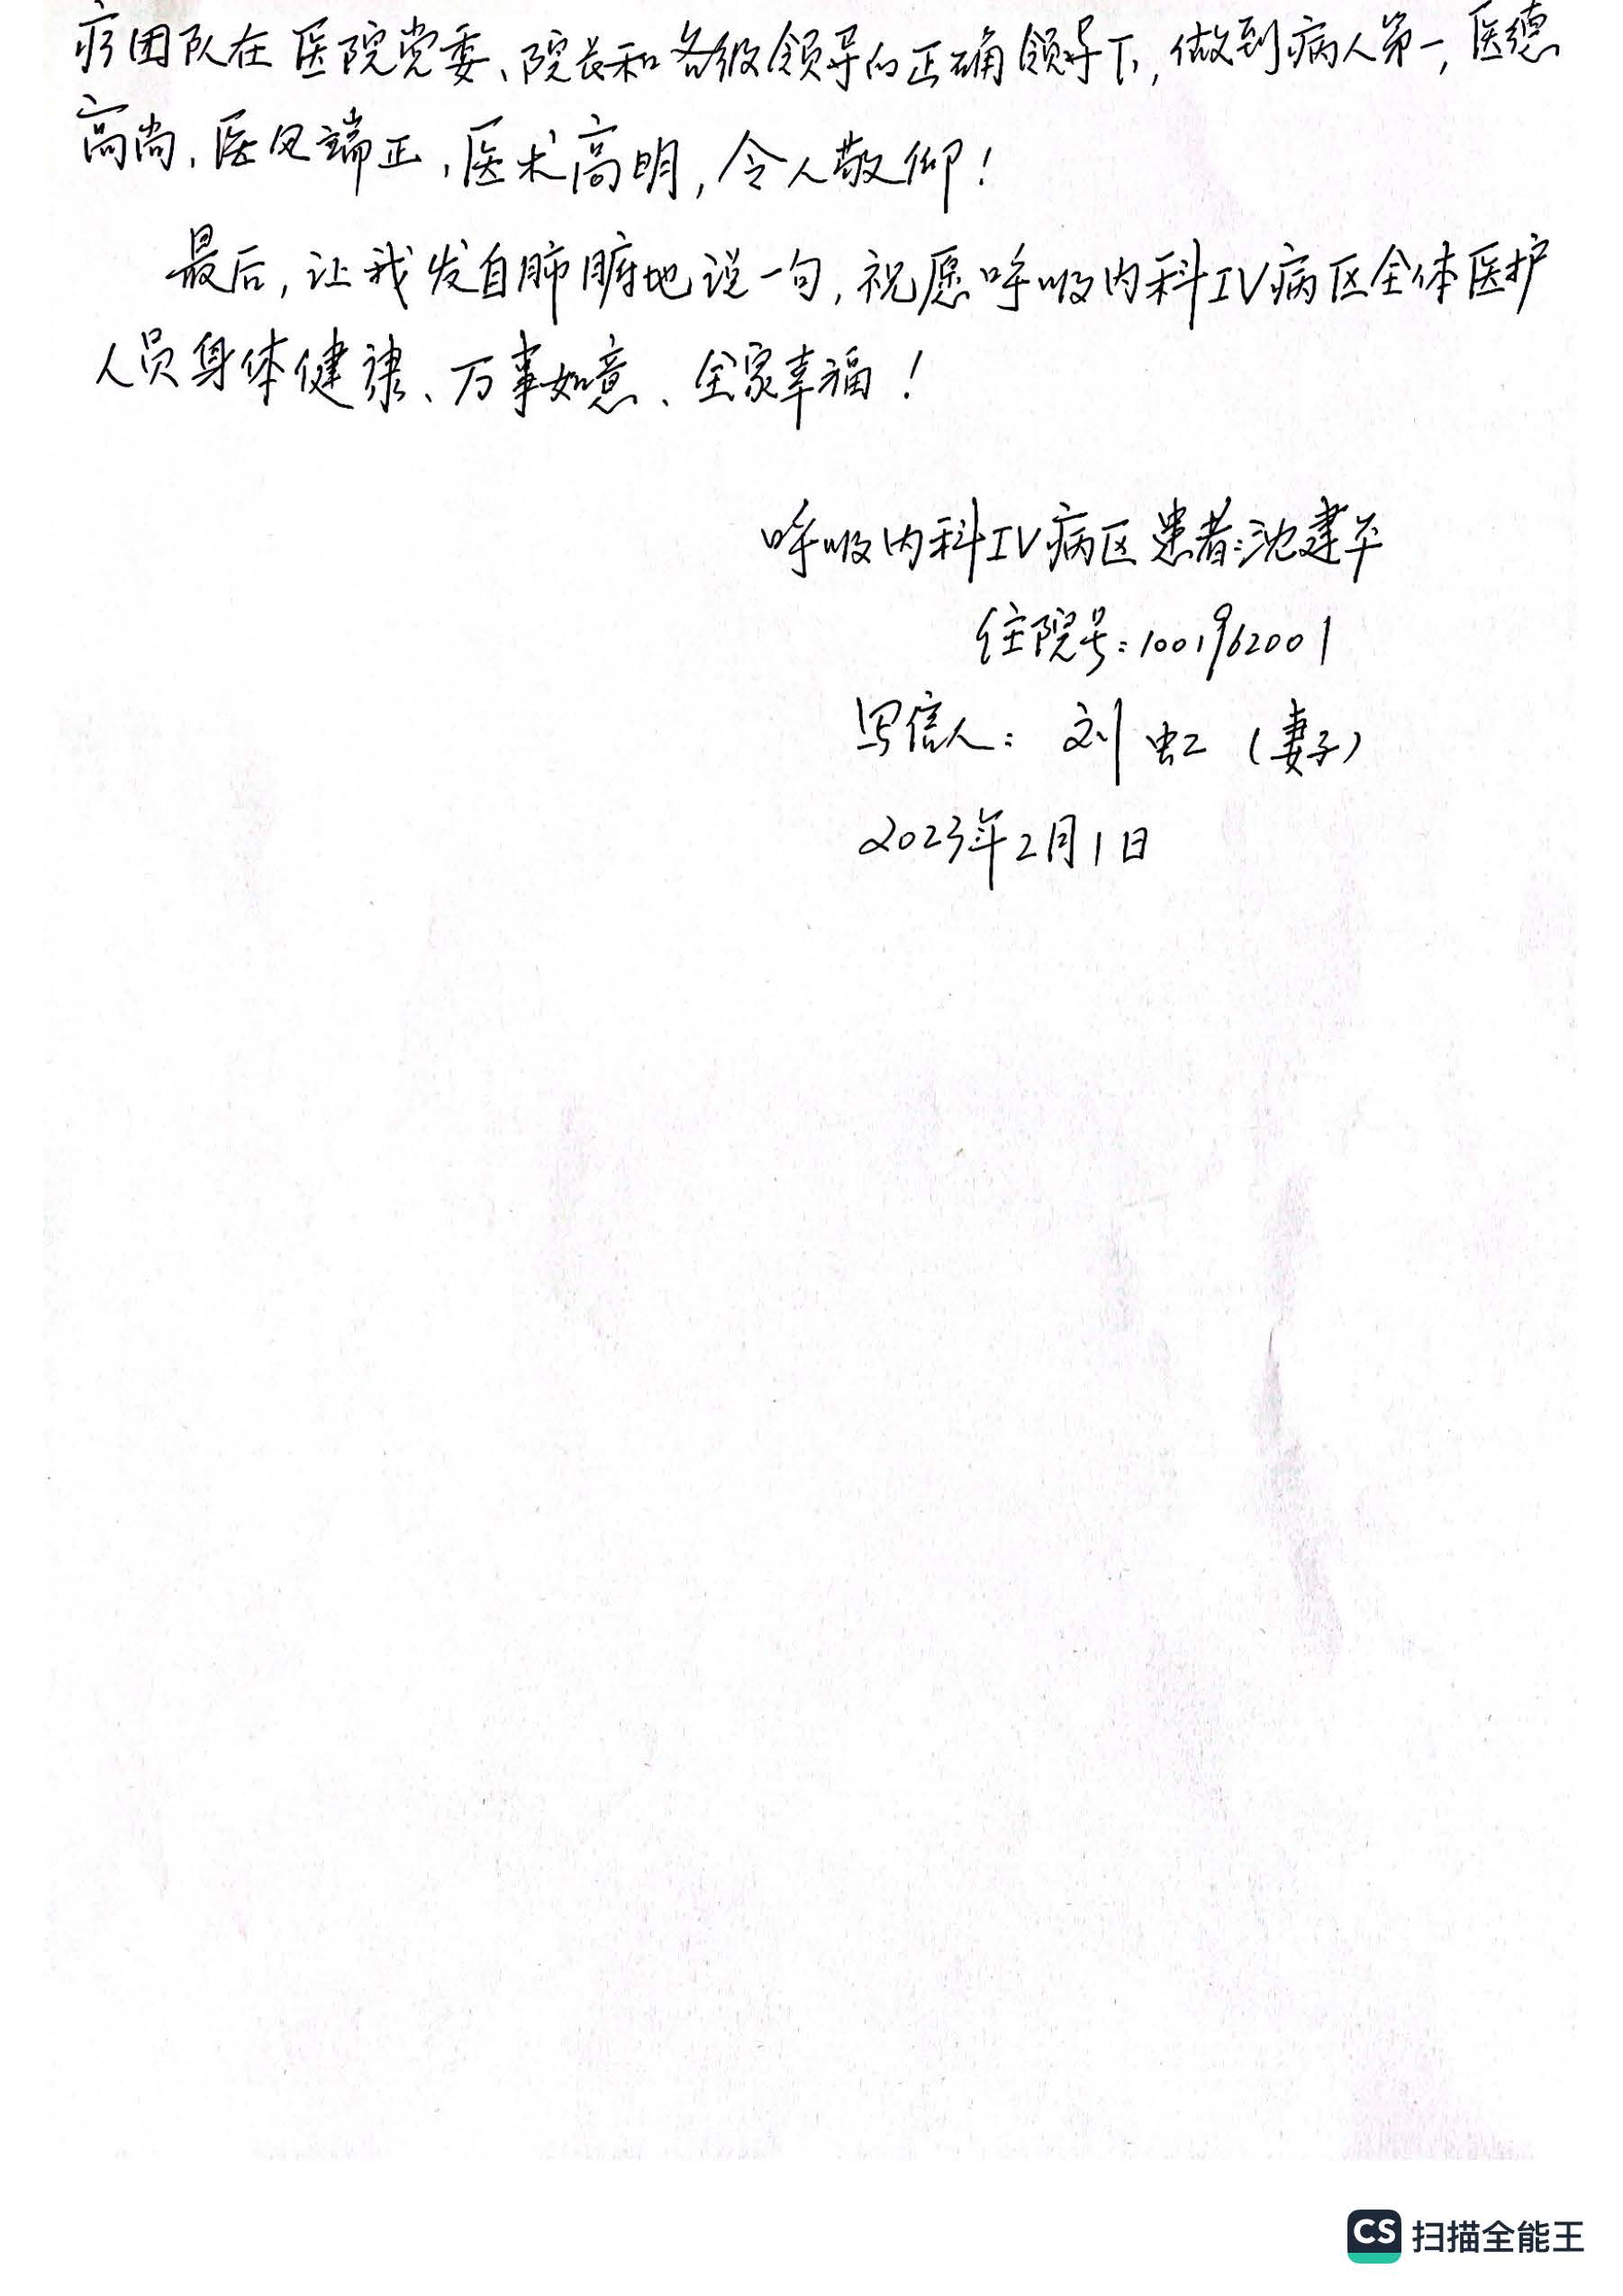 疗团队在医院党委、院长和各级领导的正确领导下,做到病人第一,医德
高尚,医风端正,医术高明,令人敬仰!
最后,让我发自肺腑地说一句,祝愿呼吸内科IV病区全体医护
人员身体健康、万事如意、全家幸福!
呼吸内科IV病区患者:沈建平
住院号:1001962001
写信人: 刘虹(妻子)
2023年2月1日
CS 扫描全能王